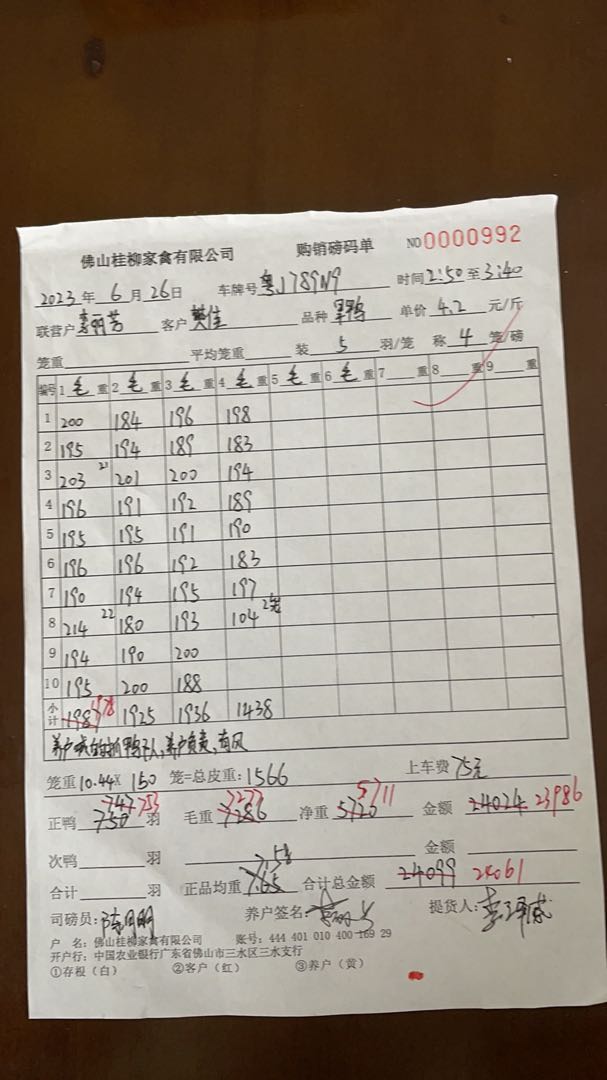 佛山桂柳家禽有限公司 购销磅码单 NO0000992
2023年 6月 26日 车牌号 粤J789N9 时间 2:50 至 3:40
联营户 李丽芳 客户 樊佳 品种 单价 4.2 元/斤
笼重 平均笼重 装 5 羽/笼 称 4 笼/磅
编号 1 毛 重 2 毛 重 3 毛 重 4 毛 重 5 毛 重 6 毛 重 7 重 8 重 9 重
1 200 184 196 198
2 195 194 189 183
3 203 21 201 200 194
4 196 191 192 189
5 195 195 191 190
6 196 196 192 183
7 190 194 195 197
8 214 22 180 193 104 2笼
9 194 190 200
10 195 200 188
小计 1987 1978 1925 1936 1438
养户负责,有风
笼重 10.44 X 150 笼=总皮重: 1566 上车费 75元
747 753 7277 5711
正鸭 750 羽 毛重 7286 净重 5720 金额 24024 23986
次鸭 羽 7.58 金额
合计 羽 正品均重 7.65 合计总金额 24099 24061
司磅员: 养户签名: 提货人:
户 名: 佛山桂柳家禽有限公司 账号: 444 401 010 400 169 29
开户行: 中国农业银行广东省佛山市三水区三水支行
①存根（白） ②客户（红） ③养户（黄）